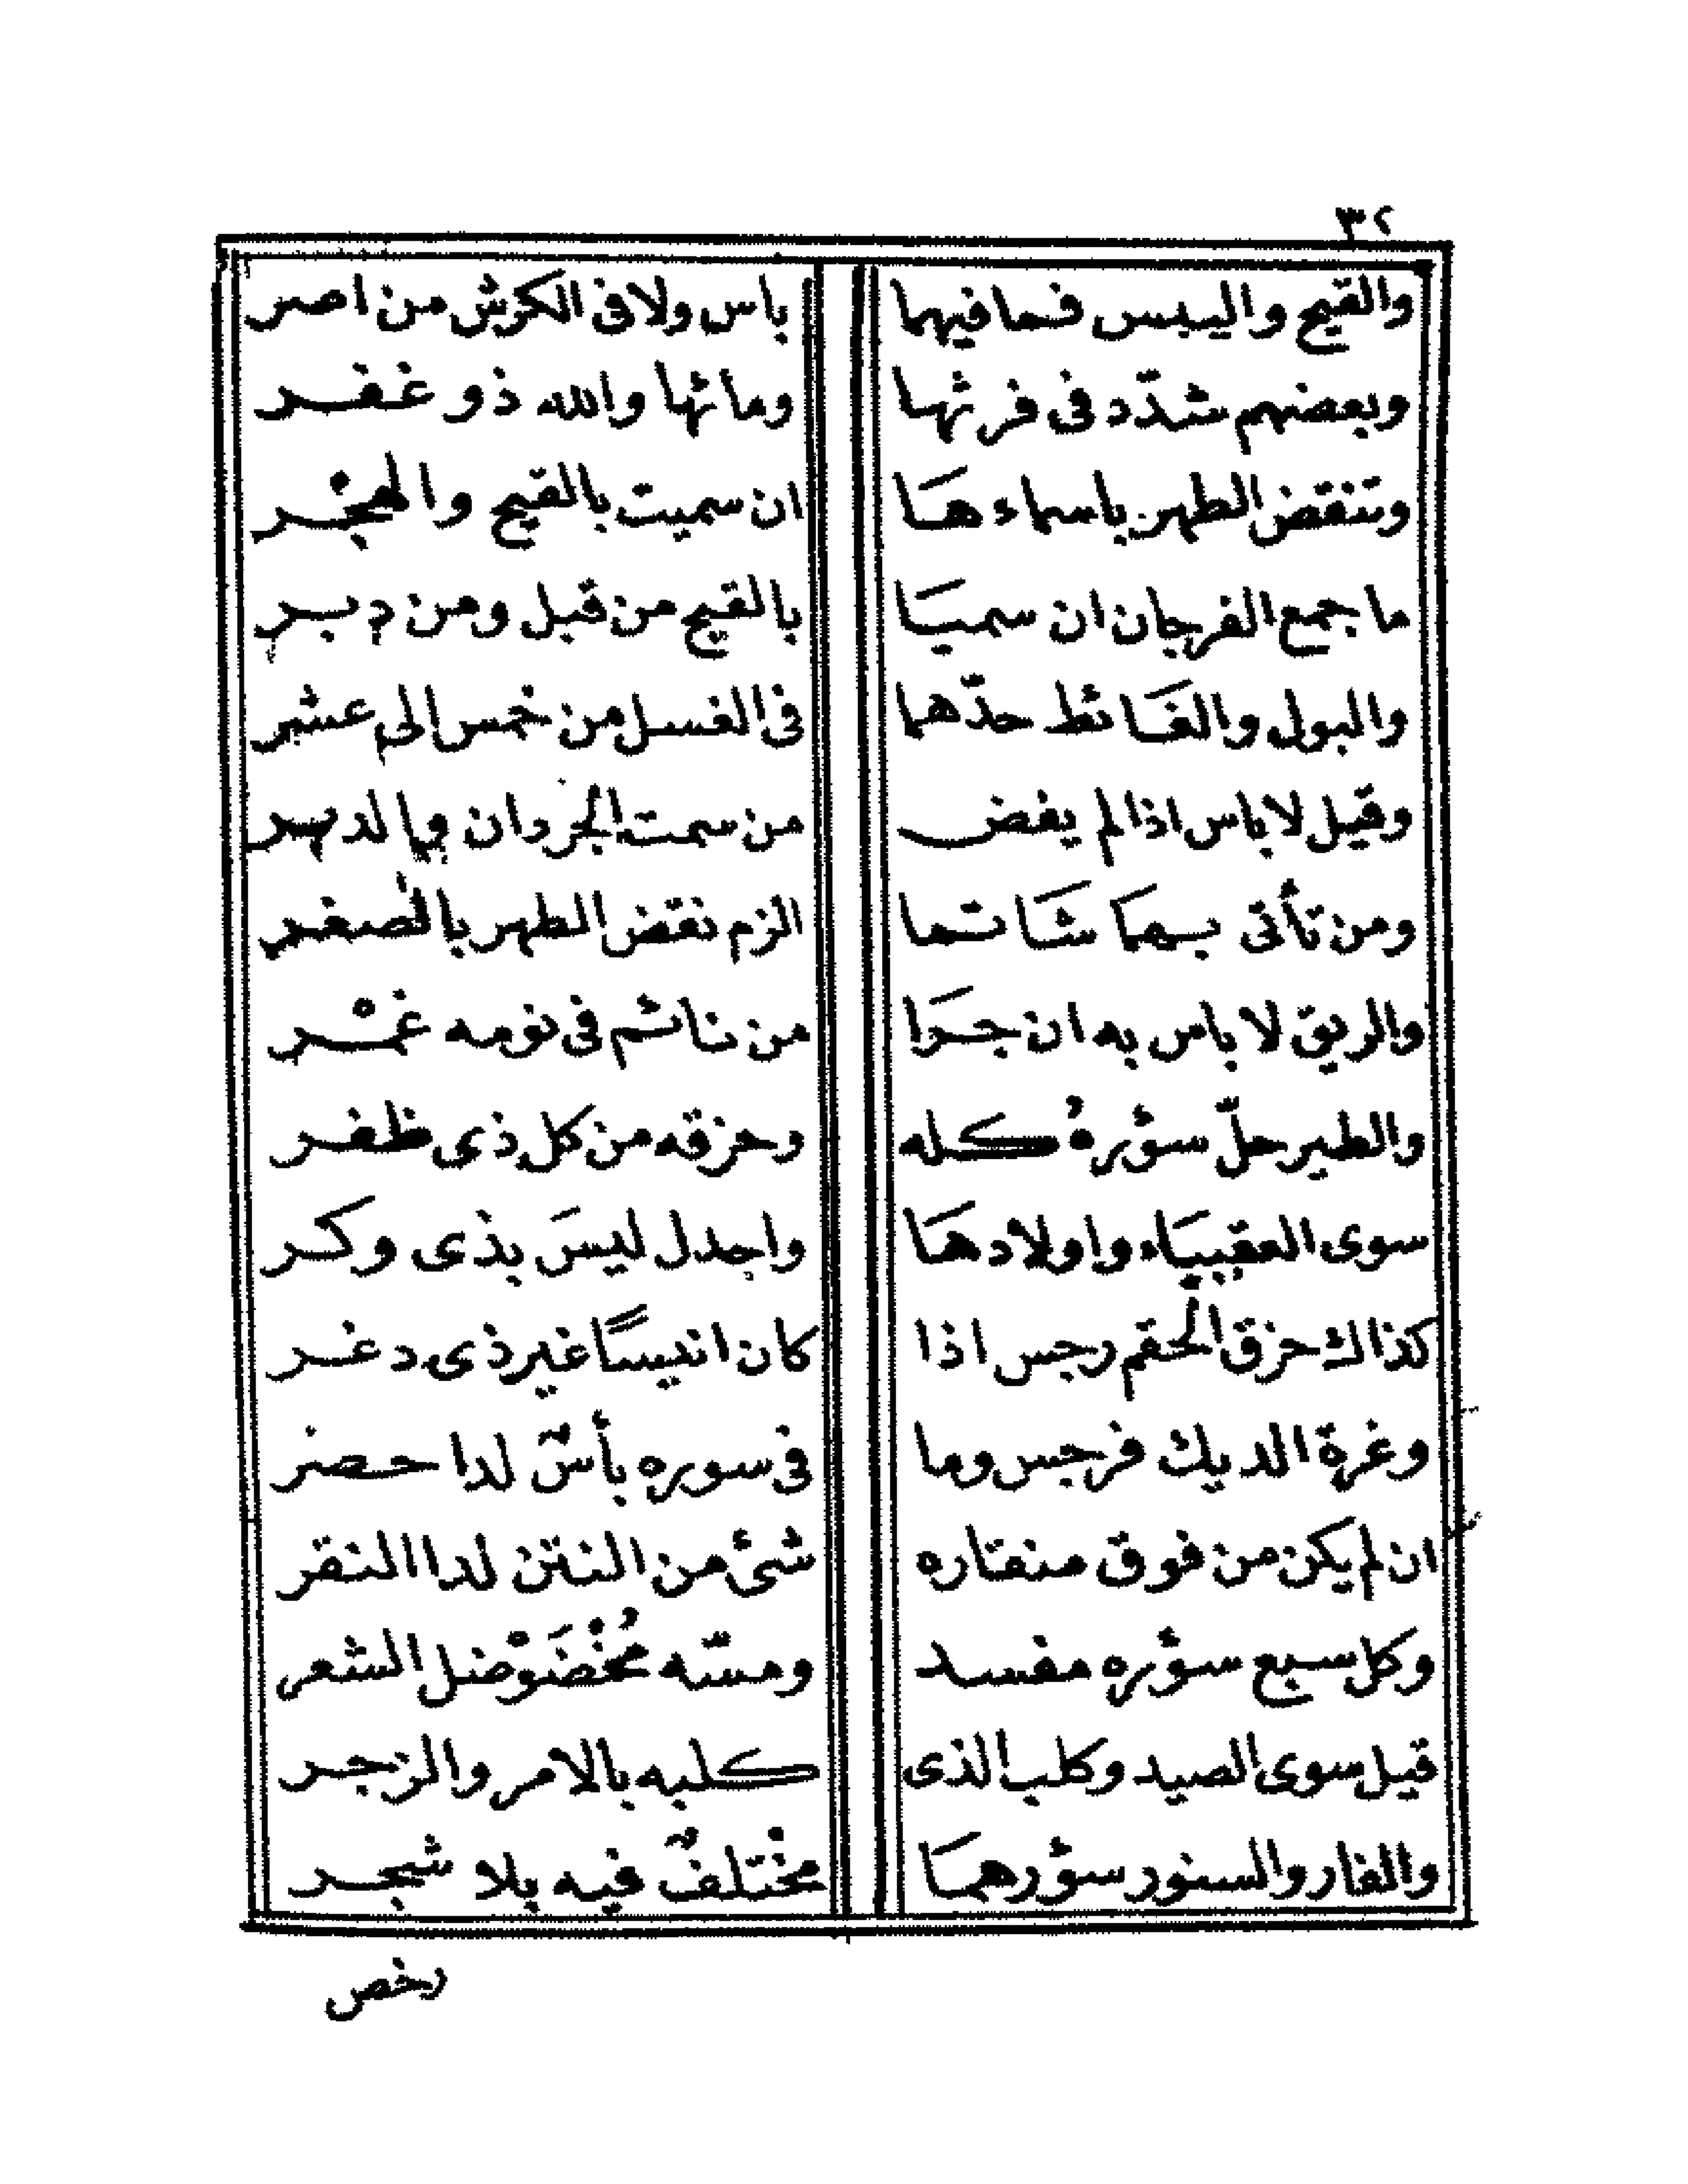 ٣٢
والقيح واليبس فما فيهما باس ولا فى الكرش من اصر
وبعضهم شدّد فى فرثها ومائها والله ذو غفر
وتنقض الطهر باسماء هَا ان سميت بالقيح والهجْر
ما جمع الفرجان ان سميَا بالقيح من قبل ومن دبر
والبول والغَائط حدّهما فى الغسل من خمس الى عشر
وقيل لا باس اذا لم يفض من سمت الجردان وبالدبر
ومن تأتى بهما شَاتما الزم نقض الطهر بالصغر
والريق لا باس به ان جرَا من نائم فى نومه غمْر
والطير حلّ سؤرهُ كله وحزقه من كل ذى ظفر
سوى العقبيَاء واولادهَا واجدل ليسَ بذى وكر
كذاك حزق الحقم رجس اذا كان انيسًا غير ذى دغر
وغرة الديك فرجس وما فى سوره بأسٌ لدا حضر
ان لم يكن من فوق منقاره شئ من النتن لدا النقر
وكل سبع سؤره مفسد ومسّه مُخْضَوْضل الشعر
قيل سوى الصيد وكلب الذى كلبه بالامر والزجر
والفار والسنور سؤرهمَا مخْتلفٌ فيه بلا شجر
رخص